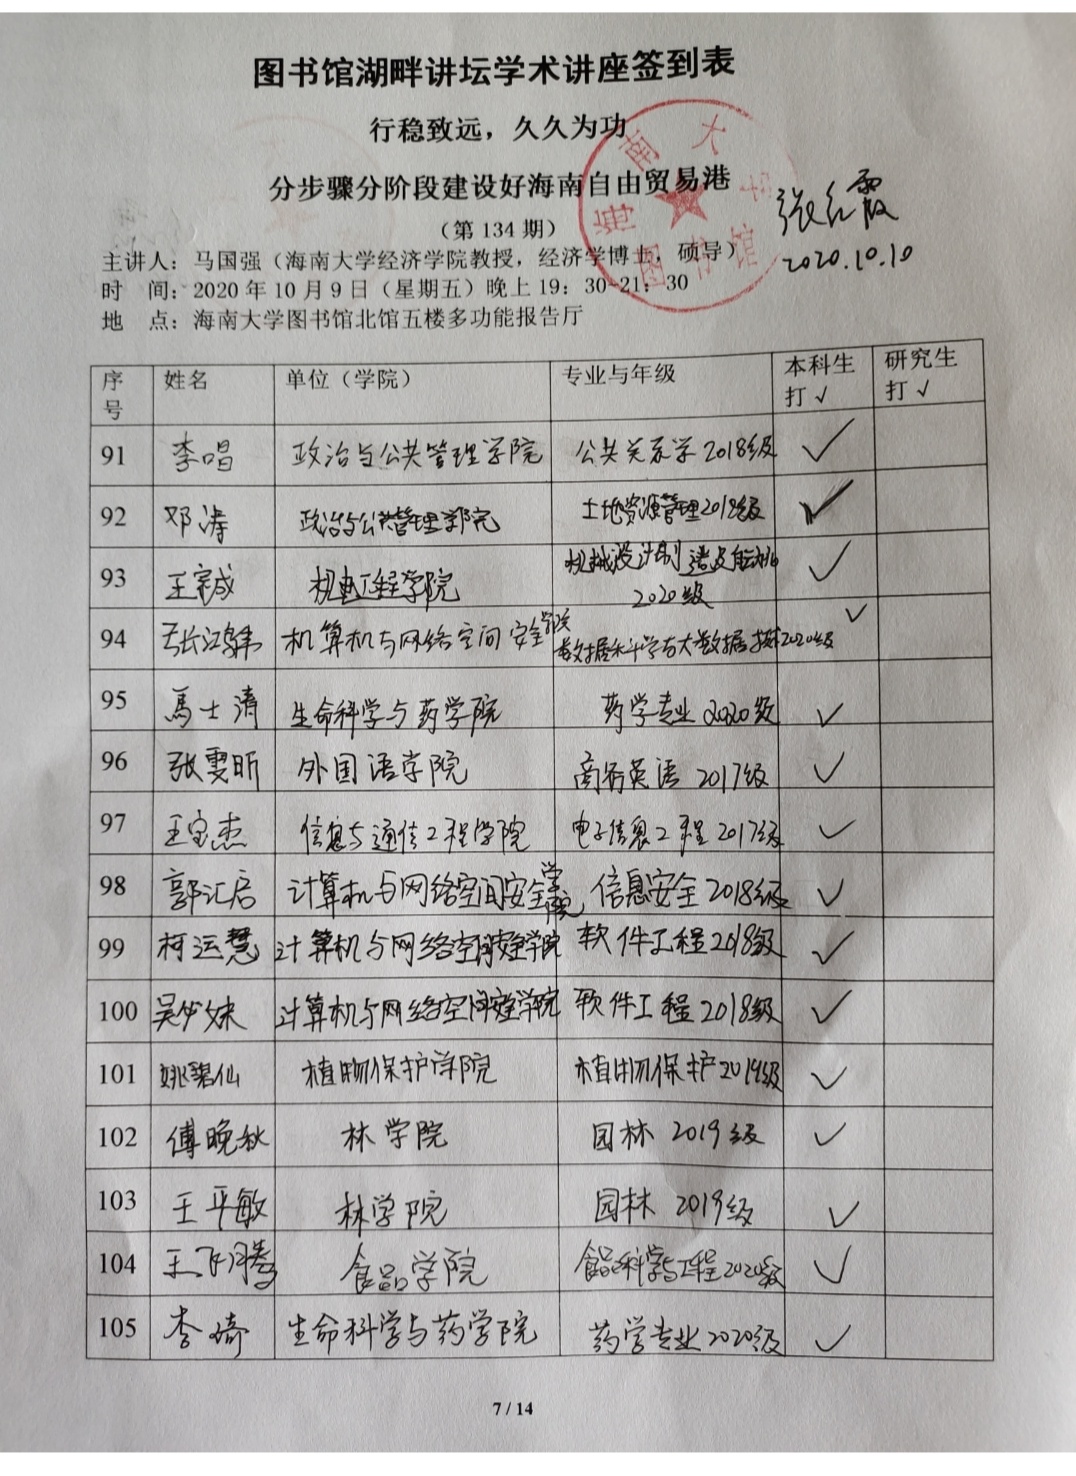 图书馆湖畔讲坛学术讲座签到表
行稳致远，久久为功
分步骤分阶段建设好海南自由贸易港
（第 134 期）
张红霞
2020.10.10
海南大学图书馆
主讲人：马国强（海南大学经济学院教授，经济学博士，硕导）
时 间：2020 年 10 月 9 日（星期五）晚上 19：30-21：30
地 点：海南大学图书馆北馆五楼多功能报告厅
序号 姓名 单位（学院） 专业与年级 本科生打√ 研究生打√
91 李唱 政治与公共管理学院 公共关系学 2018级 ✓
92 邓涛 政治与公共管理学院 土地资源管理2018级 ✓
93 王成 机电工程学院 机械设计制造及自动化2020级 ✓
94 张江 计算机与网络空间安全学院 数据科学与大数据技术2020级 ✓
95 馬士清 生命科学与药学院 药学专业 2020级 ✓
96 张雯昕 外国语学院 商务英语 2017级 ✓
97 王宝杰 信息与通信工程学院 电子信息工程 2017级 ✓
98 郭汇启 计算机与网络空间安全学院 信息安全 2018级 ✓
99 柯运慧 计算机与网络空间安全学院 软件工程2018级 ✓
100 吴妹 计算机与网络空间安全学院 软件工程2018级 ✓
101 姚碧仙 植物保护学院 植物保护2019级 ✓
102 傅晚秋 林学院 园林 2019级 ✓
103 王平敏 林学院 园林 2019级 ✓
104 王飞腾 食品学院 食品科学与工程2020级 ✓
105 李琦 生命科学与药学院 药学专业2020级 ✓
7 / 14